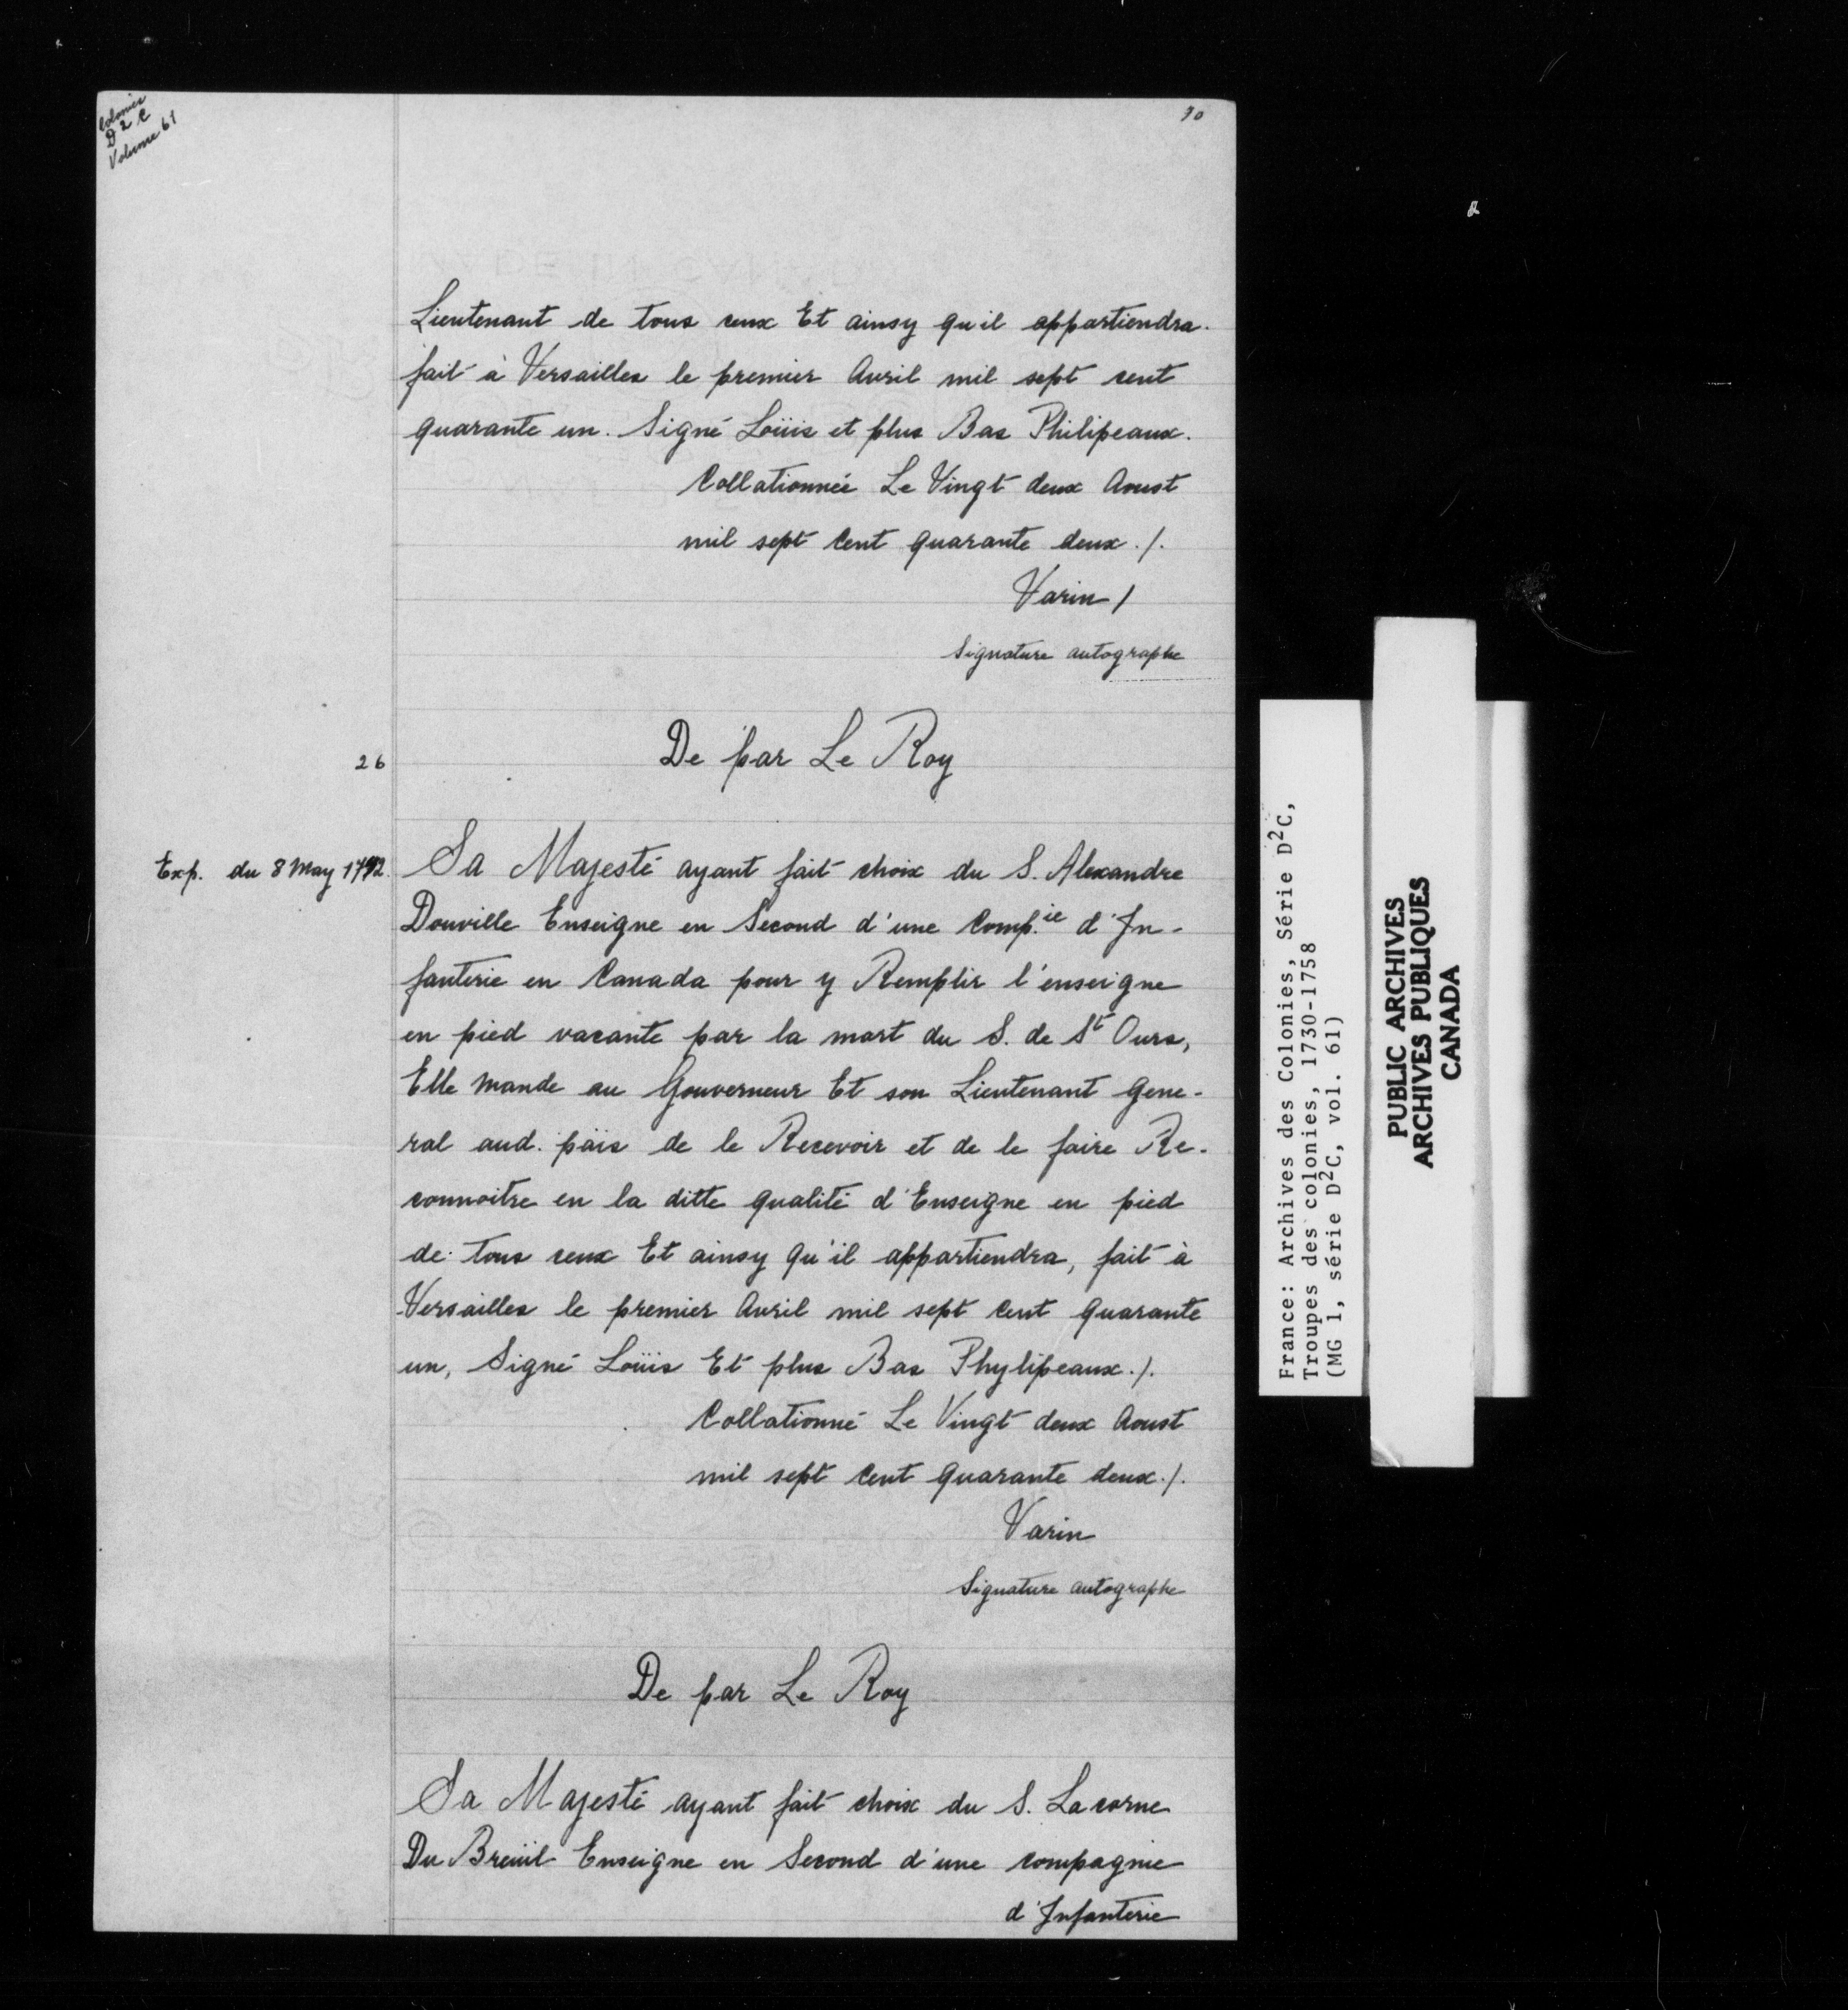 Colonies
D 2 C
Volume 61
90
Lieutenant de tous ceux Et ainsy qu'il appartiendra.
fait à Versailles le premier Avril mil sept cent
quarante un. Signé Loüis et plus Bas Philipeaux.
Collationnée Le Vingt deux Aoust
mil sept Cent quarante deux ./.
Varin /
Signature autographe
26
De par Le Roy
Exp. du 8 May 1742.
Sa Majesté ayant fait choix du S. Alexandre
Douville Enseigne en Second d'une Comp.ie d'In-
fanterie en Canada pour y Remplir l'enseigne
en pied vacante par la mort du S. de St Ours,
Elle mande au Gouverneur Et son Lieutenant Gene-
ral aud. païs de le Recevoir et de le faire Re-
connoitre en la ditte qualité d'Enseigne en pied
de tous ceux Et ainsy qu'il appartiendra, fait à
Versailles le premier Avril mil sept Cent quarante
un, Signé Loüis Et plus Bas Phylipeaux ./.
Collationné Le Vingt deux Aoust
mil sept Cent quarante deux ./.
Varin
Signature autographe
De par Le Roy
Sa Majesté ayant fait choix du S. Lacorne
Du Breüil Enseigne en Second d'une compagnie
d'Infanterie
France: Archives des Colonies, Série D²C,
Troupes des colonies, 1730-1758
(MG 1, série D²C, vol. 61)
PUBLIC ARCHIVES
ARCHIVES PUBLIQUES
CANADA